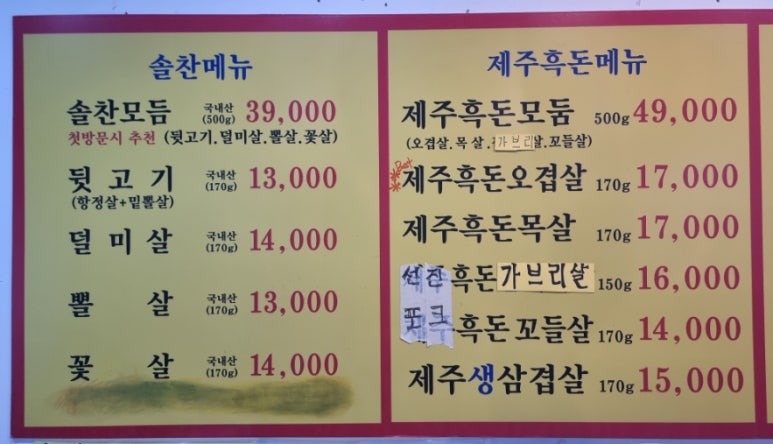 솔찬메뉴
솔찬모듬 국내산 (500g) 39,000
첫방문시 추천 (뒷고기.덜미살.뽈살.꽃살)
뒷고기 국내산 (170g) 13,000
(항정살+밑뽈살)
덜미살 국내산 (170g) 14,000
뽈살 국내산 (170g) 13,000
꽃살 국내산 (170g) 14,000
제주흑돈메뉴
제주흑돈모둠 500g 49,000
(오겹살.목살.가브리살.꼬들살)
Best 제주흑돈오겹살 170g 17,000
제주흑돈목살 170g 17,000
선진 흑돈 가브리살 150g 16,000
포크 흑돈 꼬들살 170g 14,000
제주생삼겹살 170g 15,000